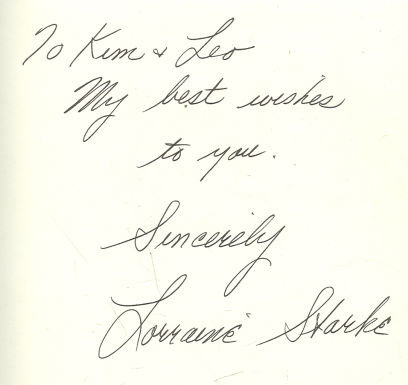 To Kim & Leo
My best wishes
to you.
Sincerely
Lorraine Starke